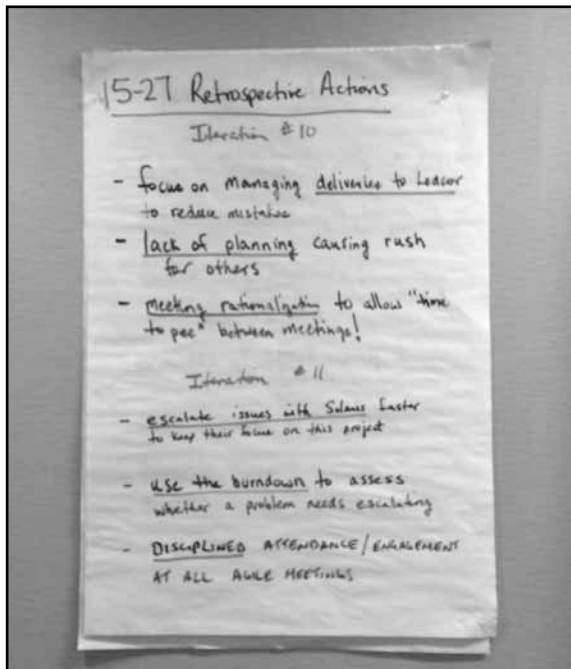 15-27 Retrospective Actions
Iteration #10
- focus on managing deliveries to Ledcor
to reduce mistakes
- lack of planning causing rush
for others
- meeting rationalization to allow "time
to pee" between meetings!
Iteration #11
- escalate issues with faster
to keep their focus on this project
- use the burndown to assess
whether a problem needs escalating
- DISCIPLINED ATTENDANCE/ENGAGEMENT
AT ALL AGILE MEETINGS